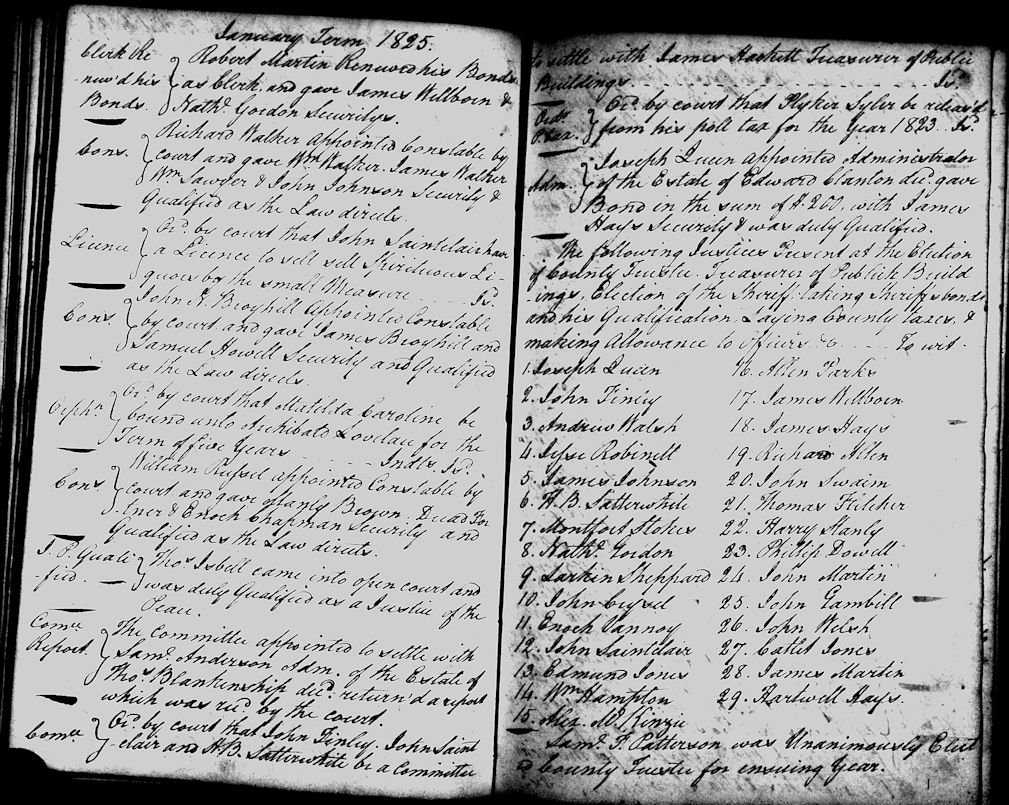 January Term 1825.
Clerk Re
-new'd his
Bonds.
Robert Martin Renewed his Bonds
as Clerk, and gave James Wellborn &
Nathl. Gordon Securitys.
Cons.
Richard Walker Appointed Constable by
court and gave Wm. Walker. James Walker
Wm. Sawyer & John Johnson Security &
Qualified as the Law directs.
Licence
Ord. by court that John Saintclair have
a Licence to sell sell Spirituous Li-
quors by the small Measure Isd.
Cons.
John H. Broyhill Appointed Constable
by court and gave James Broyhill and
Samuel Howell Security and Qualified
as the Law directs.
Orphn.
Ord. by court that Matilda Caroline be
bound unto Archibald Lovelace for the
Term of five Years Indtr. Isd.
Cons
William Russel appointed Constable by
court and gave Stanly Brown.
& Enoch Chapman Security and
Qualified as the Law directs.
J. P. Quali
-fied.
Thos. Isbell came into open court and
was duly Qualified as a Justice of the
Peace.
Comee.
Report.
The Committee appointed to settle with
Saml. Anderson Adm. of the Estate of
Thos. Blankenship decd. return'd a report
which was recd. by the court.
Comee.
Ord. by court that John Finley. John Saint
-clair and H.B. Satterwhite be a Committee
to settle with James Hackett Treasurer of Public
Buildings Isd.
Ord. by court that Plyker Syler be releas'd
from his poll tax for the Year 1823. Isd.
Adm.
Joseph Queen appointed Administrator
of the Estate of Edward Clanton decd. gave
Bond in the sum of $.200. with James
Hays Security & was duly Qualified.
The following Justices Present at the Election
of County Trustee. Treasurer of Publick Build
-ings, Election of the Sheriff, taking Sheriffs bonds
and his Qualification, Laying County taxes, &
making Allowance to Officers &c To wit
1. Joseph Queen
2. John Finley
3. Andrew Walsh
4. Jesse Robinett
5. James Johnson
6. H. B. Satterwhite
7. Montfort Stokes
8. Nathl. Gordon
9. Larkin Sheppard
10. John Cussel
11. Enoch Vannoy
12. John Saintclair
13. Edmund Jones
14. Wm. Hampton
15. Alex. M. Kinzie
16. Allen Parks
17. James Wellborn
18. James Hays
19. Richard Allen
20. John Swaim
21. Thomas Fletcher
22. Harry Stanly
23. Phillip Dowell
24. John Martin
25. John Gambill
26. John Welsh
27. Catlet Jones
28. James Martin
29. Hartwell Hays.
Saml. F. Patterson was Unanimously Elect
-ed County Trustee for ensuing Year.